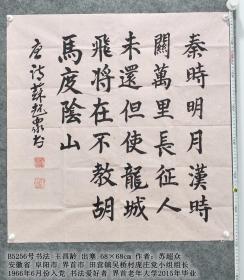 秦時明月漢時
關萬里長征人
未還但使龍城
飛將在不教胡
馬度陰山
唐詩 蘇超眾书
B5256号书法 王昌龄 出塞 68×68cm 作者：苏超众
安徽省 阜阳市 界首市 田营镇吴桥村庞庄党小组组长
1966年6月份入党 书法爱好者 界首老年大学2015年毕业